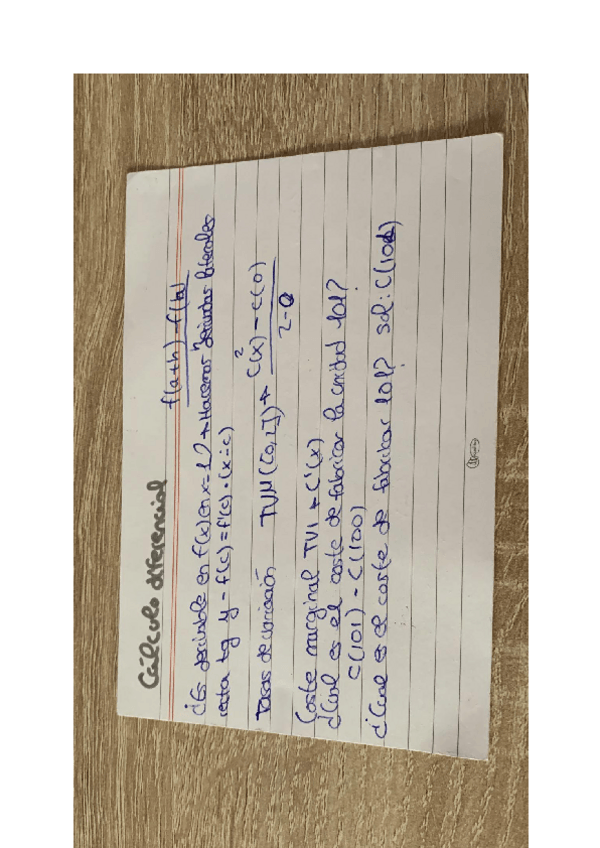 Cálculo diferencial
f(a+h) - f(a)
h
¿Es derivable en f(x) en x=1? → Hacemos derivadas laterales
recta tg y - f(c) = f'(c) · (x-c)
Tasas de variación TVM([0,2]) → C(x) - C(0)
2
2-0
Coste marginal TVI → C'(x)
¿Cual es el coste de fabricar la unidad 101?
C(101) - C(100)
¿Cual es el coste de fabricar 101? sol: C(101)